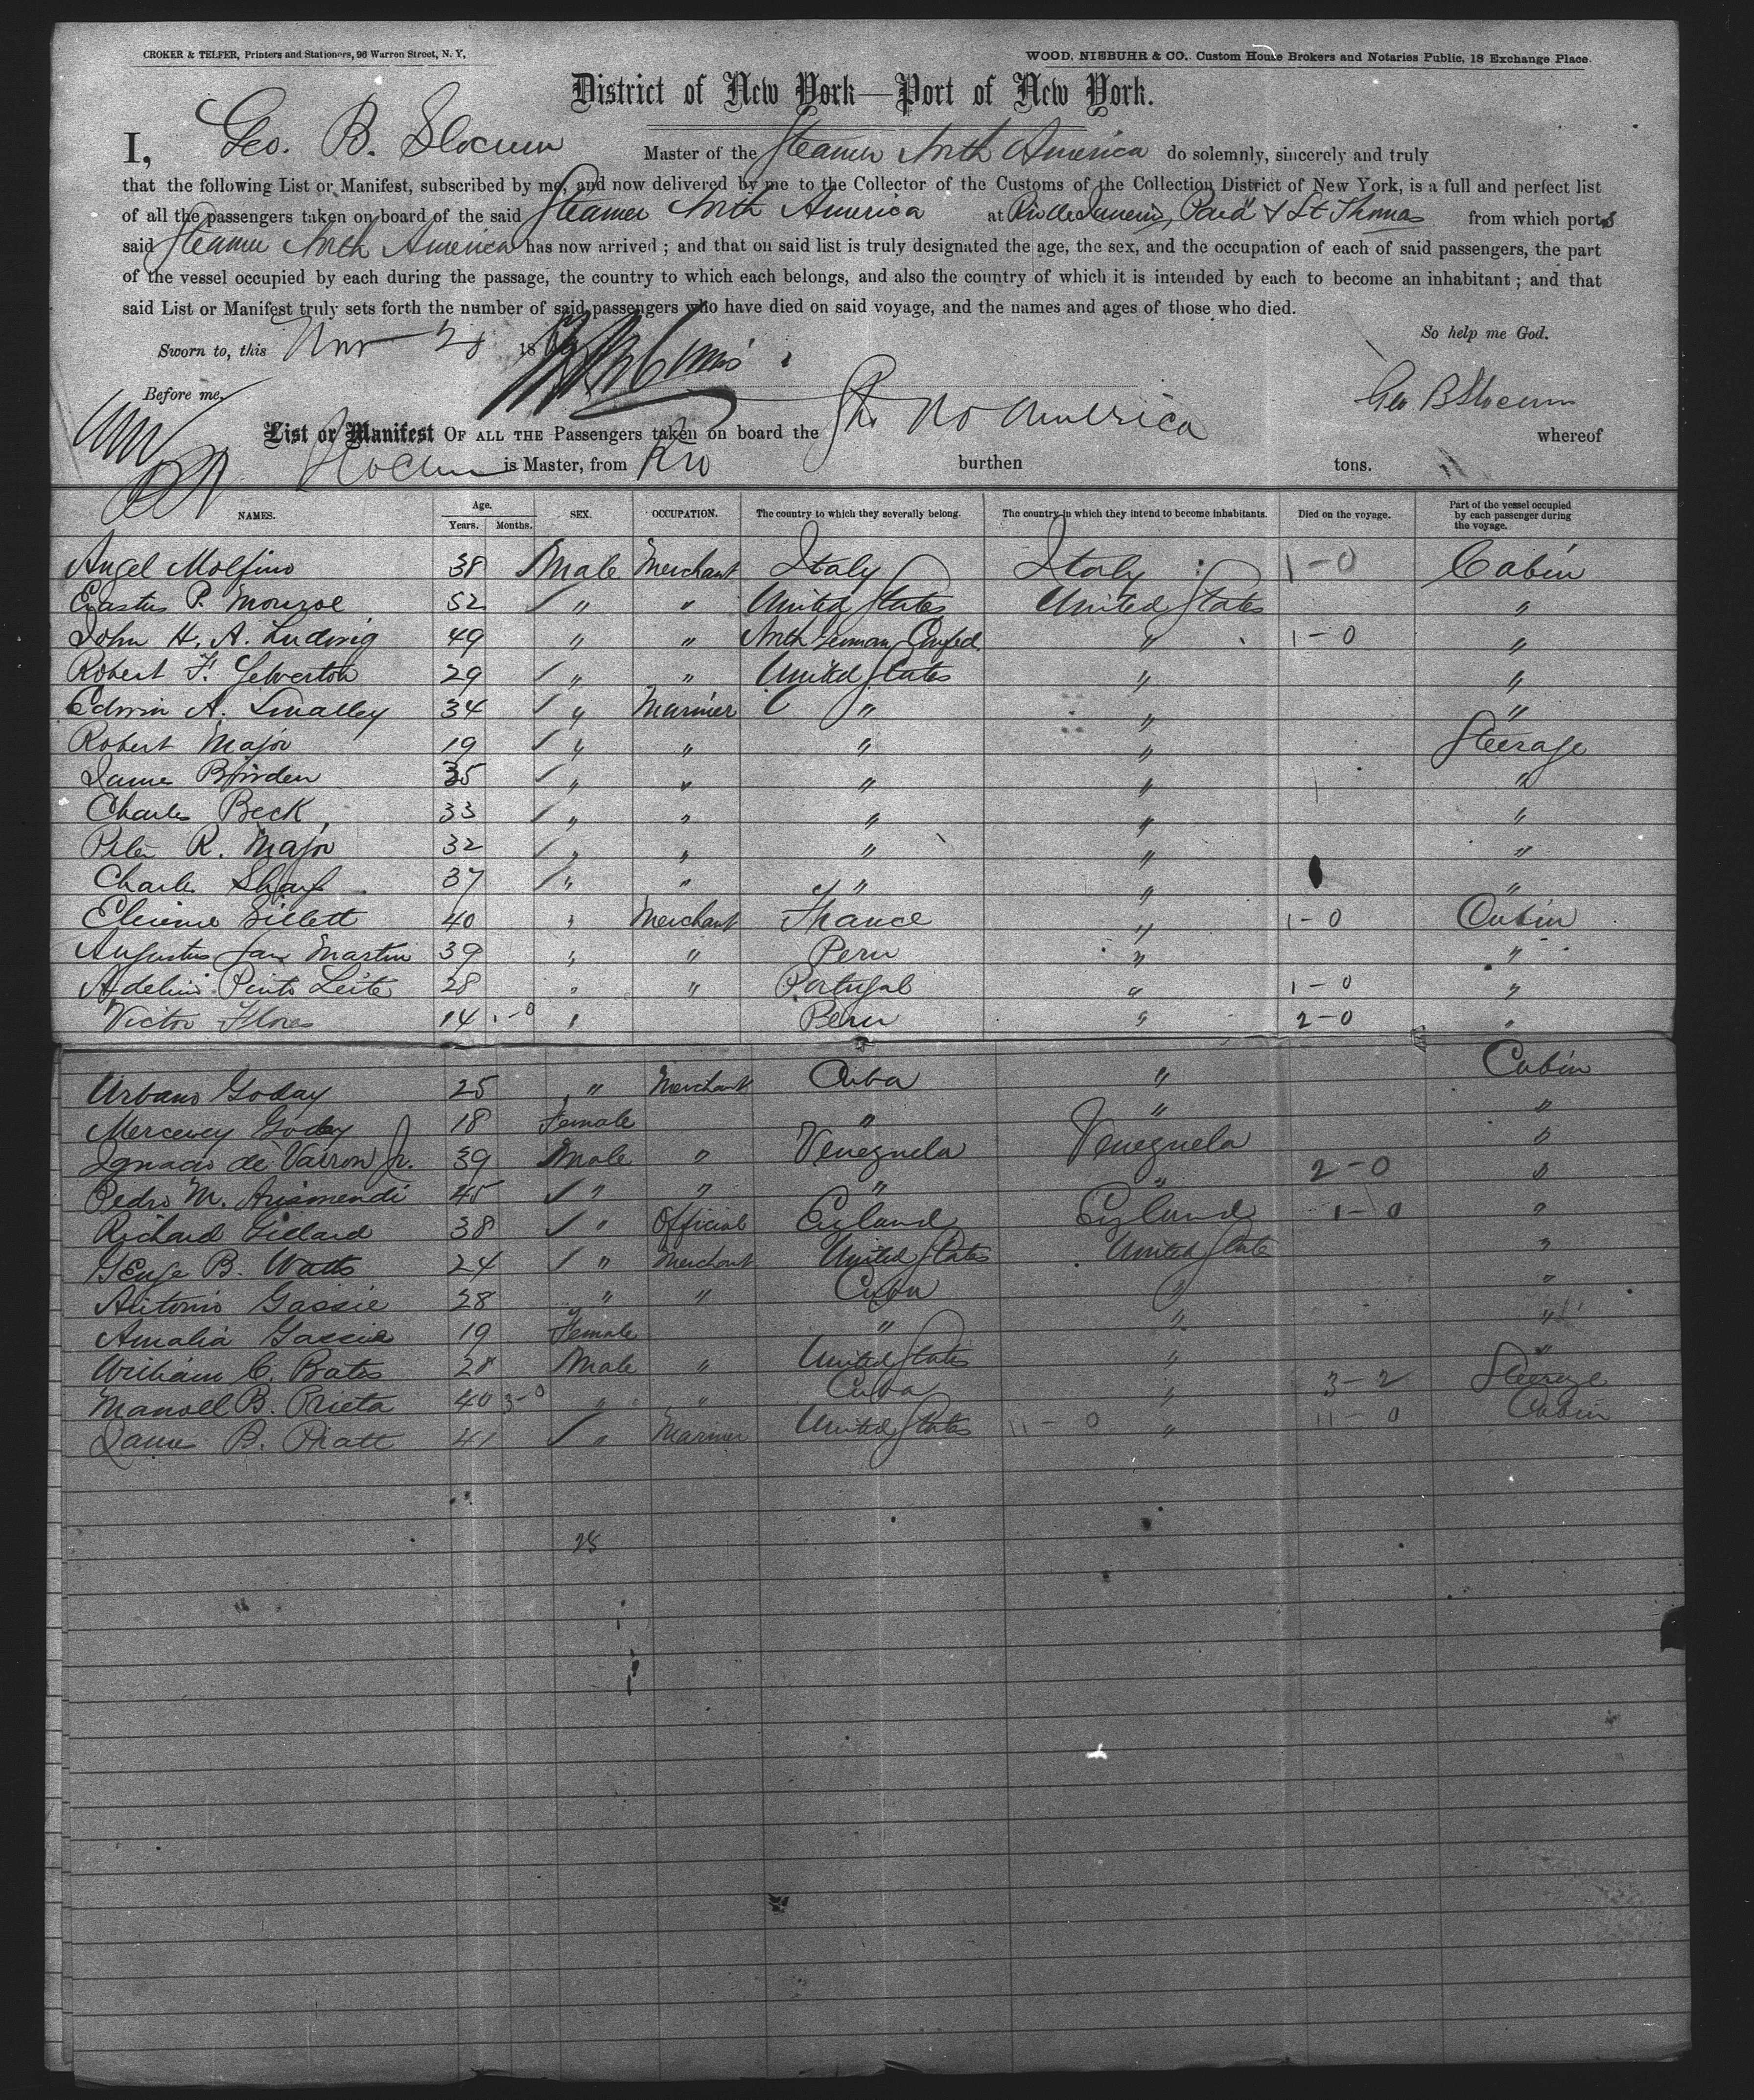 CROKER & TELFER, Printers and Stationers, 96 Warren Street, N. Y.
WOOD, NIEBUHR & CO. Custom House Brokers and Notaries Public, 18 Exchange Place.
District of New York—Port of New York.
I, Geo. B. Slocum Master of the Steamer North America do solemnly, sincerely and truly
that the following List or Manifest, subscribed by me, and now delivered by me to the Collector of the Customs of the Collection District of New York, is a full and perfect list
of all the passengers taken on board of the said Steamer North America at Rio de Janeiro, Pará & St Thomas from which ports
said Steamer North America has now arrived ; and that on said list is truly designated the age, the sex, and the occupation of each of said passengers, the part
of the vessel occupied by each during the passage, the country to which each belongs, and also the country of which it is intended by each to become an inhabitant ; and that
said List or Manifest truly sets forth the number of said passengers who have died on said voyage, and the names and ages of those who died.
So help me God.
Sworn to, this Nov 28 18
Before me, Geo B Slocum
List or Manifest OF ALL THE Passengers taken on board the No America whereof
Slocum is Master, from Rio burthen tons.
NAMES. Age. Years. Months. SEX. OCCUPATION. The country to which they severally belong. The country in which they intend to become inhabitants. Died on the voyage. Part of the vessel occupied by each passenger during the voyage.
Angel Molfino 38 Male Merchant Italy Italy 1-0 Cabin
Erastus P. Monroe 52 " " United States United States "
John H. A. Ludwig 49 " " North German Confed. " 1-0 "
Robert F. Yelverton 29 " " United States " "
Edwin A. Smalley 34 " Mariner " " "
Robert Major 19 " " " " Steerage
James Borden 35 " " " " "
Charles Beck 33 " " " " "
Peter R. Major 32 " " " " "
Charles Sharp 37 " " " " "
Etienne Gillett 40 " Merchant France " 1-0 Cabin
Augustus San Martin 39 " " Peru " "
Adelino Pinto Leite 28 " " Portugal " 1-0 "
Victor Flores 14 1-0 " Peru " 2-0 "
Urbano Goday 25 " Merchant Cuba " Cabin
Goday 18 Female " " "
Ignacio de Jr. 39 Male " Venezuela Venezuela "
Pedro M. Arismendi 45 " " " " 2-0 "
Richard Gillard 38 " Official England England 1-0 "
George B. Watts 24 " Merchant United States United State "
Antonio Gassie 28 " " Cuba " "
Amalia Gassie 19 Female " " "
William C. Bates 28 Male " United States " "
Manoel B. Prieta 40 3-0 " " Cuba " 3-2 Steerage
James B. Pratt 41 " Mariner United States 11-0 " 11-0 Cabin
25